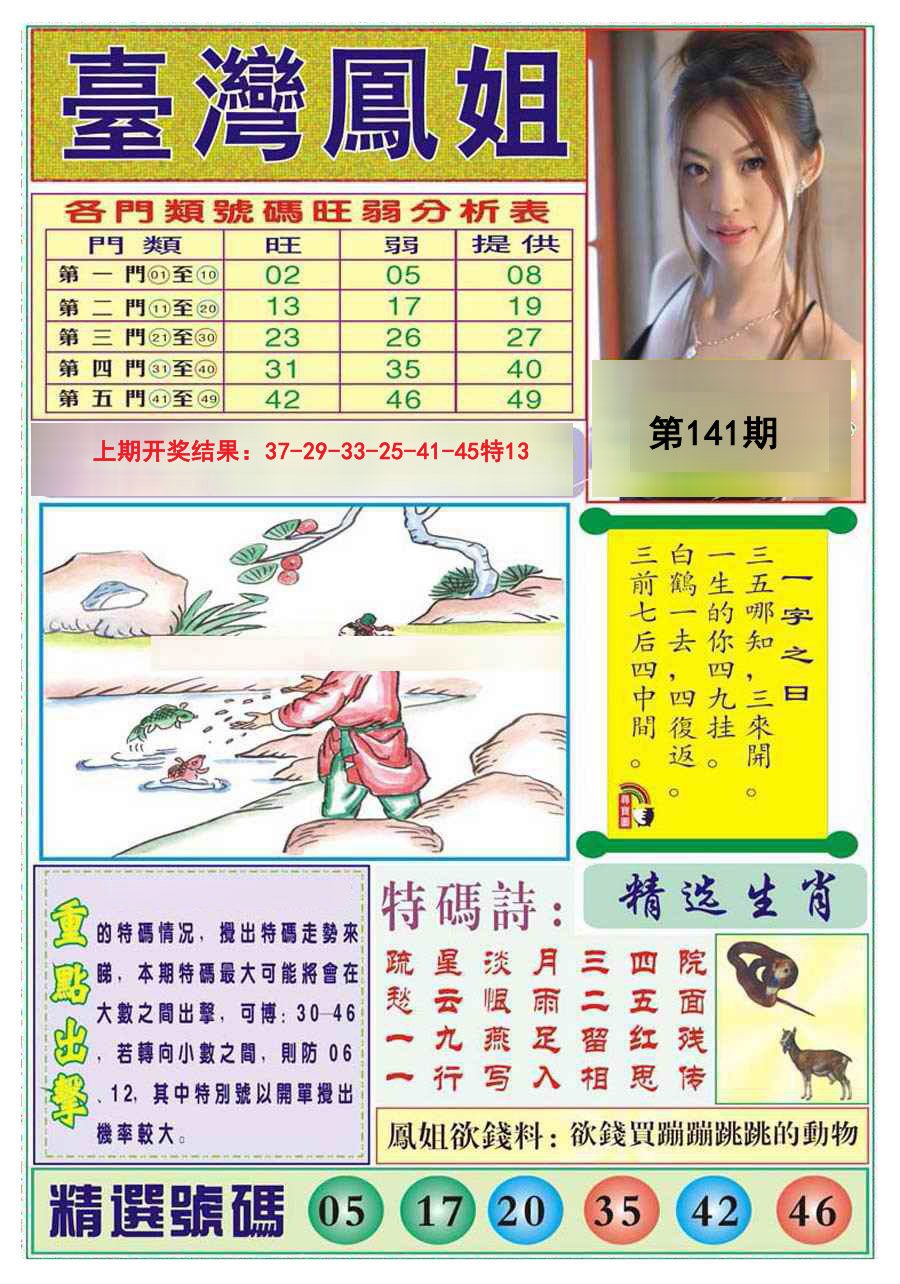 臺灣鳳姐
各門類號碼旺弱分析表
門類 旺 弱 提供
第一門01至10 02 05 08
第二門11至20 13 17 19
第三門21至30 23 26 27
第四門31至40 31 35 40
第五門41至49 42 46 49
上期开奖结果：37-29-33-25-41-45特13
第141期
一字之日
三五哪知，三來開。
一生的你四九挂。
白鶴一去，四復返。
三前七后四中間。
尋寶圖
重點出擊
的特碼情况，攪出特碼走勢來
睇，本期特碼最大可能將會在
大數之間出擊，可博：30—46
，若轉向小數之間，則防 06
、12，其中特別號以開單攪出
機率較大。
特碼詩：
疏星淡月三四院
愁云恨雨二五面
一九燕足留红残
一行写入相思传
精选生肖
鳳姐欲錢料：欲錢買蹦蹦跳跳的動物
精選號碼 05 17 20 35 42 46